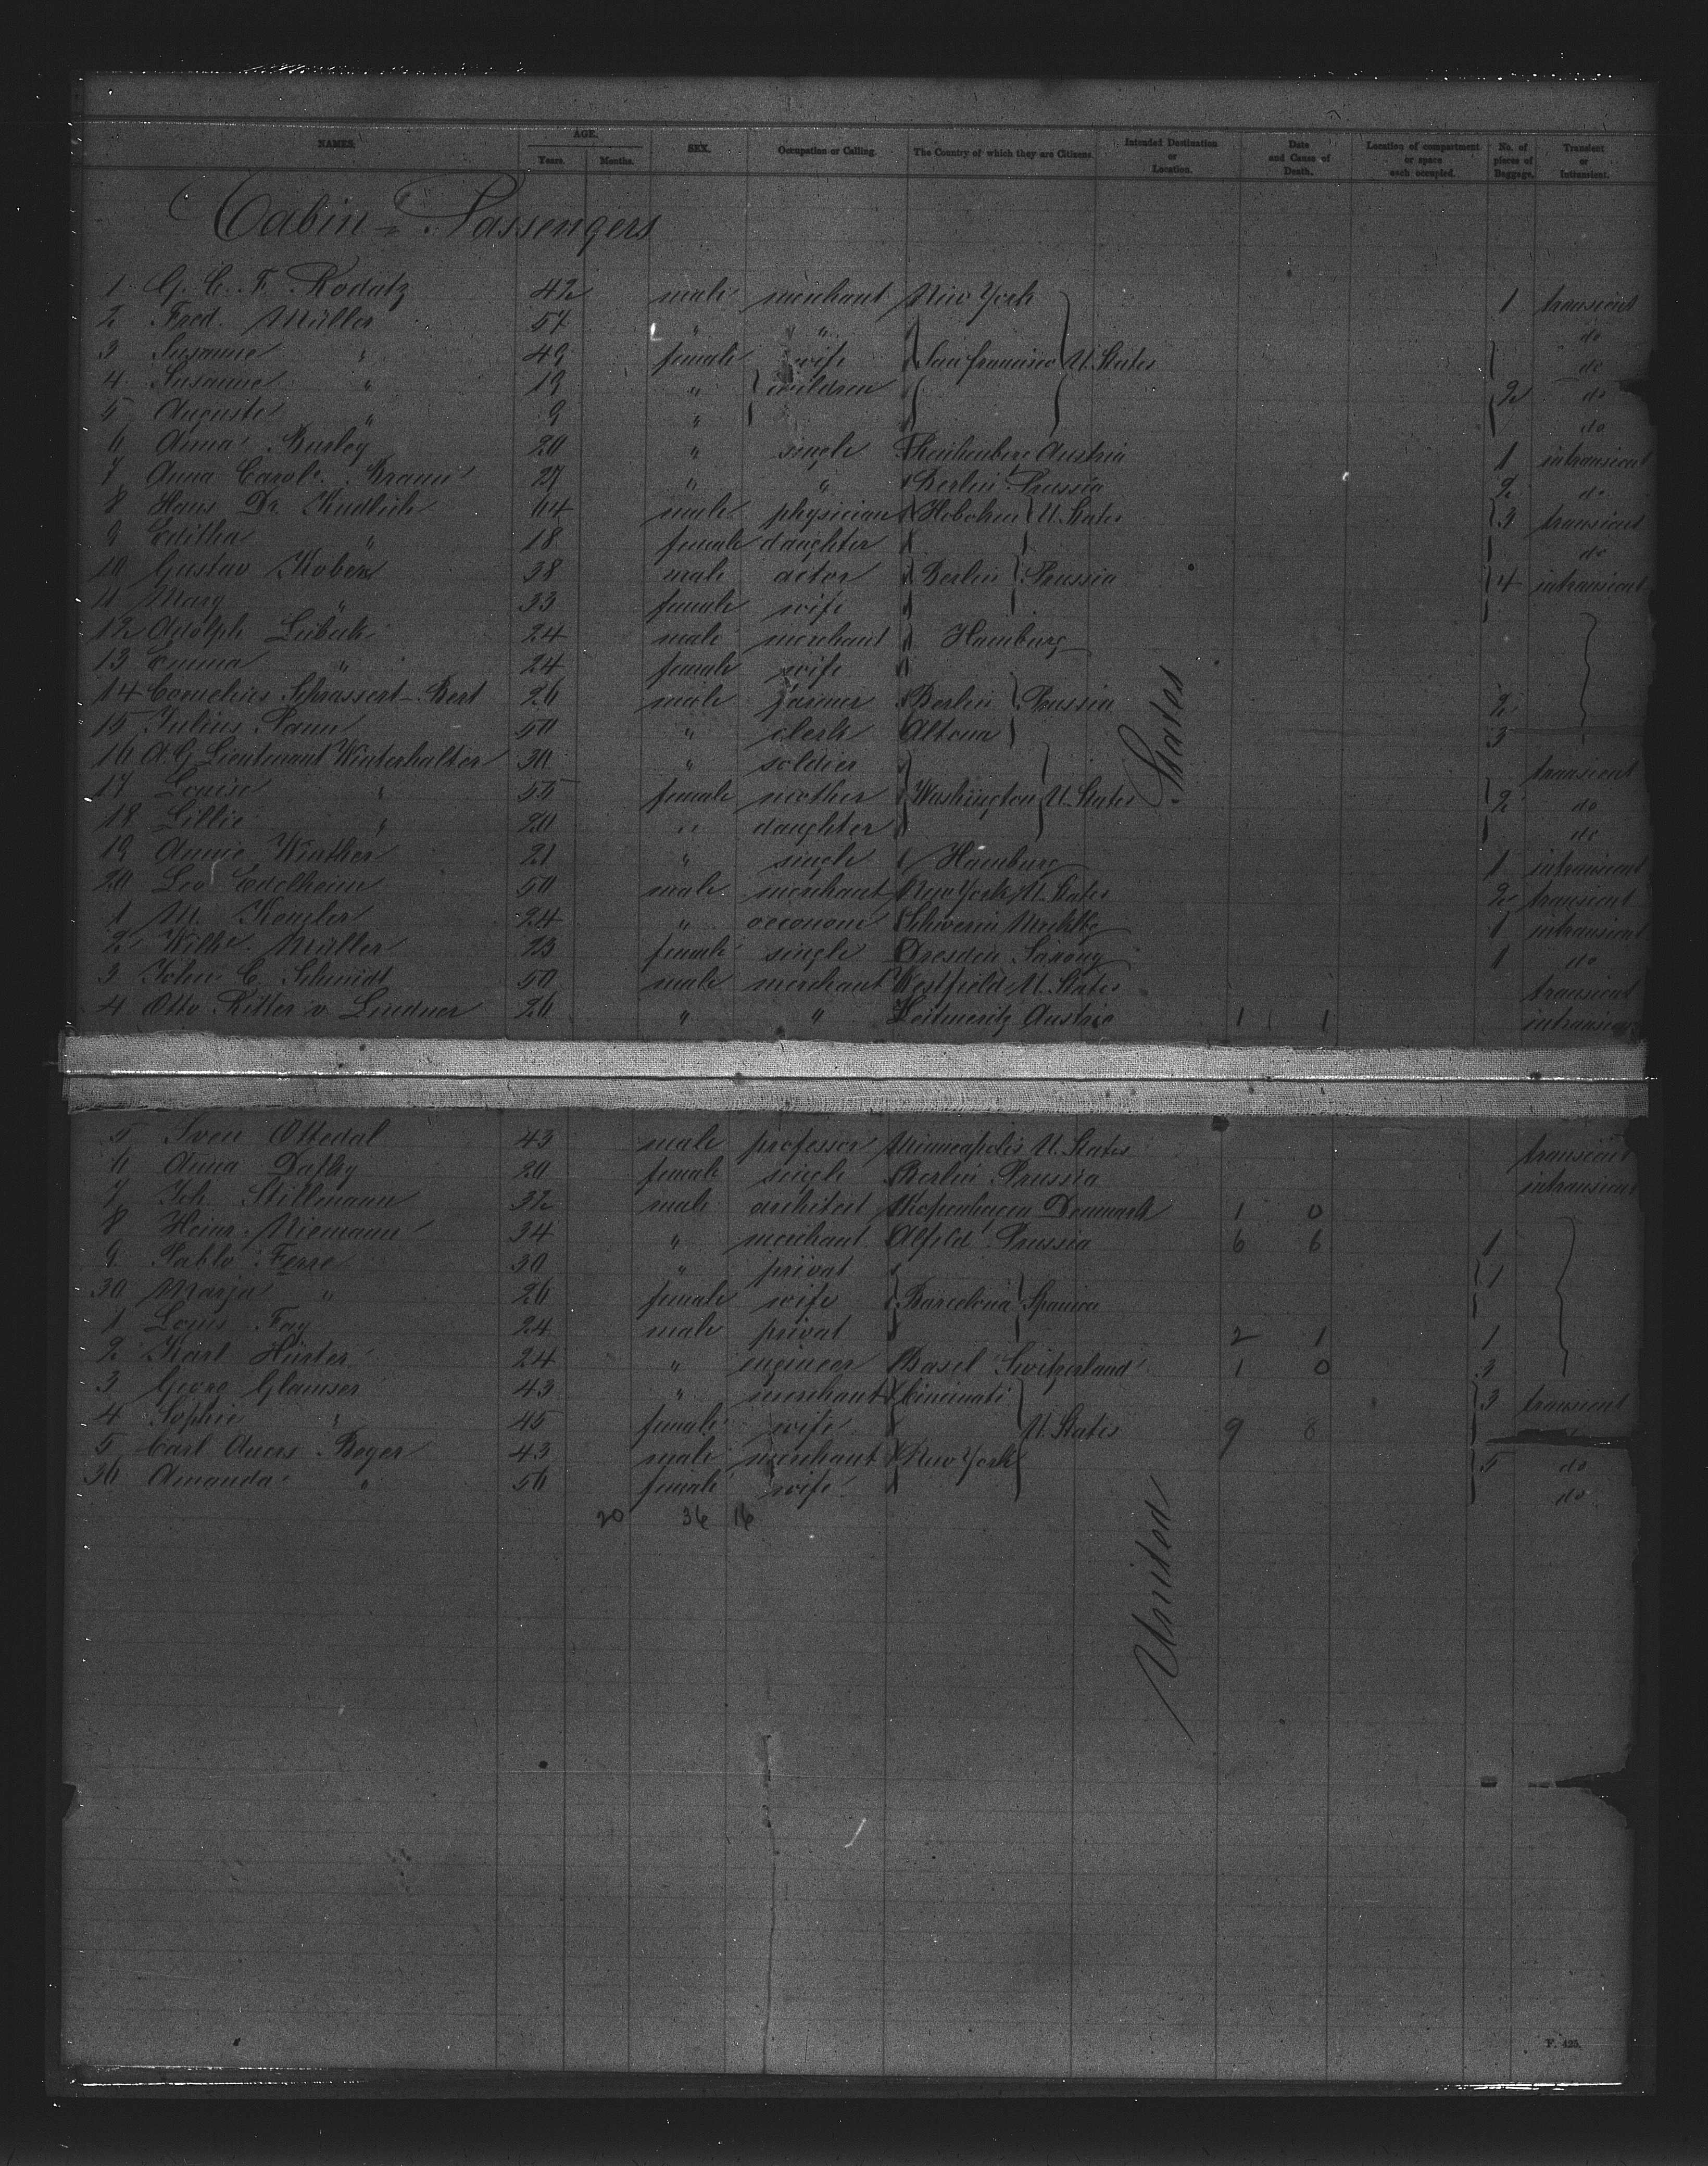 NAMES. AGE. Years. Months. SEX. Occupation or Calling. The Country of which they are Citizens. Intended Destination or Location. Date and Cause of Death. Location of compartment or space each occupied. No. of pieces of Baggage. Transient or Intransient.
Cabin = Passengers
1 G. C. F. Rodatz 42 male merchant New York 1 transient
2 Fred. Müller 57 " " do
3 Susanne " 49 female wife San francisco U. States do
4 Susanne " 19 " children 2 do
5 Auguste " 9 " do
6 Anna Bursley 20 " single Reichenberg Austria 1 intransient
7 Anna Carole. Braun 27 " " Berlin Prussia 2 do
8 Hans Dr. Kudlich 64 male physician Hoboken U. States 3 transient
9 Editha " 18 female daughter do
10 Gustav Kober 38 male actor Berlin Prussia 4 intransient
11 Mary " 33 female wife
12 Adolph Lübeck 24 male merchant Hamburg
13 Emma " 24 female wife
14 Cornelius Schrassert-Bert 26 male farmer Berlin Prussia 2
15 Julius Pann 50 " clerk Altona 3
16 A. G. Lieutenant Winterhalter 30 " soldier transient
17 Louise " 55 female mother Washington U. States 2 do
18 Lillie " 20 " daughter do
19 Annie Winther 21 " single Hamburg 1 intransient
20 Leo Edelheim 50 male merchant New York U. States 2 transient
1 M. Kongler 24 " oeconom Schwerin Mecklbg 1 intransient
2 Wilhe. Müller 23 female single Dresden Saxony 1 do
3 John C. Schmidt 50 male merchant Westfield U. States transient
4 Otto Ritter v. Lindner 26 " " Leitmeritz Austria 1 1 intransient
5 Sven Oftedal 43 male professor Minneapolis U. States transient
6 Anna 20 female single Berlin Prussia intransient
7 Joh. Stillmann 32 male architect Kopenhagen Denmark 1 0
8 Heinr. Niemann 34 " merchant Alfeld Prussia 6 6 1
9 Pablo Ferre 30 " privat 1
30 Marja " 26 female wife Barcelona Spanien
1 Louis Fay 24 male privat 2 1 1
2 Karl Hürter 24 " engineer Basel Switzerland 1 0 3
3 Georg Glamser 43 " merchant Cincinnati 3 transient
4 Sophie " 45 female wife U. States 9 8
5 Carl Auers Boger 43 male merchant New York 5 do
36 Amanda " 56 female wife do
20 36 16
United States
F. 425.